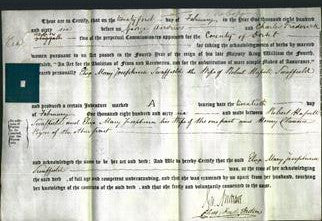 These are to Certify, that on the Twenty first day of February in the Year One thousand eight hundred
and Forty six before us George Andrews Charles Frederick
two of the perpetual Commissioners appointed for the County of Dorset
for taking the acknowledgments of deeds by married
women pursuant to an Act passed in the Fourth Year of the reign of his late Majesty King William the Fourth,
intituled "An Act for the Abolition of Fines and Recoveries, and for the substitution of more simple modes of Assurance," appeared
personally Eliza Mary Josephina Swaffield the Wife of Robert Hassell Swaffield
and produced a certain Indenture marked A bearing date the Twentieth day
of February and made between Robert Hassell
Swaffield and Eliza Mary Josephina his Wife of the one part and Henry
of the other part
and acknowledged the same to be her act and deed: And We do hereby Certify that the said Eliza Mary Josephina
Swaffield was, at the time of her acknowledging
the said deed, of full age and competent understanding, and that she was examined by us, apart from her husband, touching
her knowledge of the contents of the said deed, and that she freely and voluntarily consented to the same.
Geo Andrews